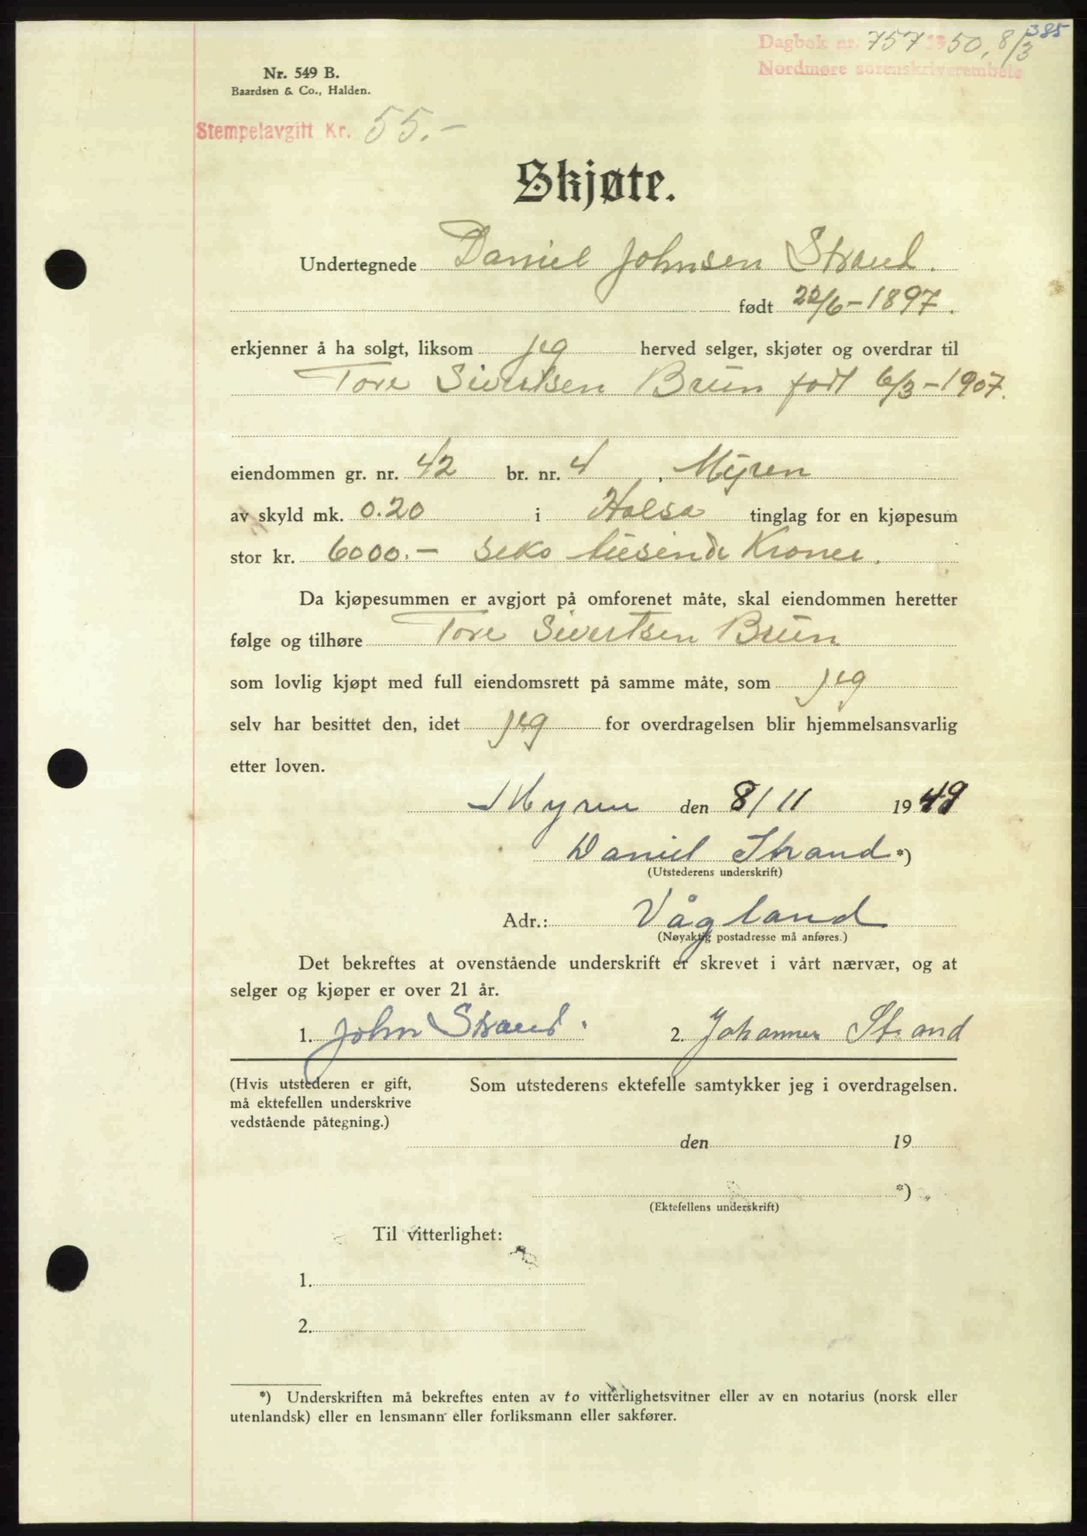 385
Dagbok nr. 757 1950, 8/3
Nordmøre sorenskriverembete
Nr. 549 B.
Baardsen & Co., Halden.
Stempelavgift Kr. 55.-
Skjøte.
Undertegnede Daniel Johnsen Strand.
født 22/6-1897.
erkjenner å ha solgt, liksom jeg herved selger, skjøter og overdrar til
Tore Sivertsen Brun født 6/3-1907.
eiendommen gr. nr. 42 br. nr. 4, Myren
av skyld mk. 0.20 i Halsa tinglag for en kjøpesum
stor kr. 6000.- seks tusende Kroner.
Da kjøpesummen er avgjort på omforenet måte, skal eiendommen heretter
følge og tilhøre Tore Sivertsen Brun
som lovlig kjøpt med full eiendomsrett på samme måte, som jeg
selv har besittet den, idet jeg for overdragelsen blir hjemmelsansvarlig
etter loven.
Myren den 8/11 1949
Daniel Strand *)
(Utstederens underskrift)
Adr.: Vågland
(Nøyaktig postadresse må anføres.)
Det bekreftes at ovenstående underskrift er skrevet i vårt nærvær, og at
selger og kjøper er over 21 år.
1. John Strand. 2. Johannes Strand
(Hvis utstederen er gift, Som utstederens ektefelle samtykker jeg i overdragelsen.
må ektefellen underskrive
vedstående påtegning.)
den 19
*)
(Ektefellens underskrift)
Til vitterlighet:
1.
2.
*) Underskriften må bekreftes enten av to vitterlighetsvitner eller av en notarius (norsk eller
utenlandsk) eller en lensmann eller forliksmann eller sakfører.